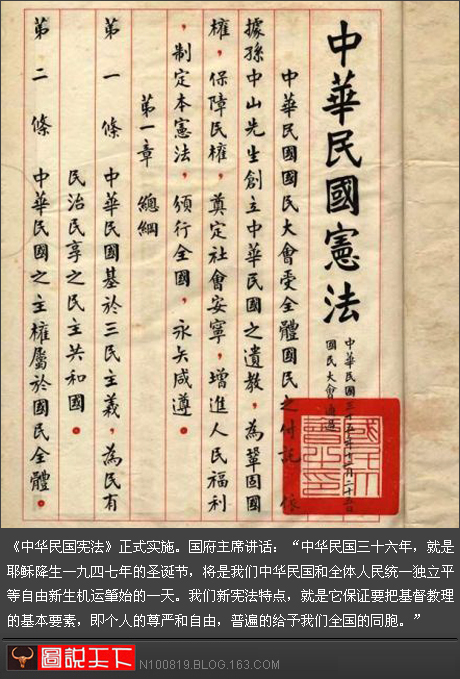 中華民國憲法
中華民國三十五年十二月二十五日
國民大會通過
中華民國國民大會受全體國民之付託 依
據孫中山先生創立中華民國之遺教，為鞏固國
權，保障民權，奠定社會安寧，增進人民福利
，制定本憲法，頒行全國，永矢咸遵。
第一章 總綱
第一條 中華民國基於三民主義，為民有
民治民享之民主共和國。
第二條 中華民國之主權屬於國民全體。
國民大
會之印
《中华民国宪法》正式实施。国府主席讲话：“中华民国三十六年，就是
耶稣降生一九四七年的圣诞节，将是我们中华民国和全体人民统一独立平
等自由新生机运肇始的一天。我们新宪法特点，就是它保证要把基督教理
的基本要素，即个人的尊严和自由，普遍的给予我们全国的同胞。”
圖説天下 N100819.BLOG.163.COM